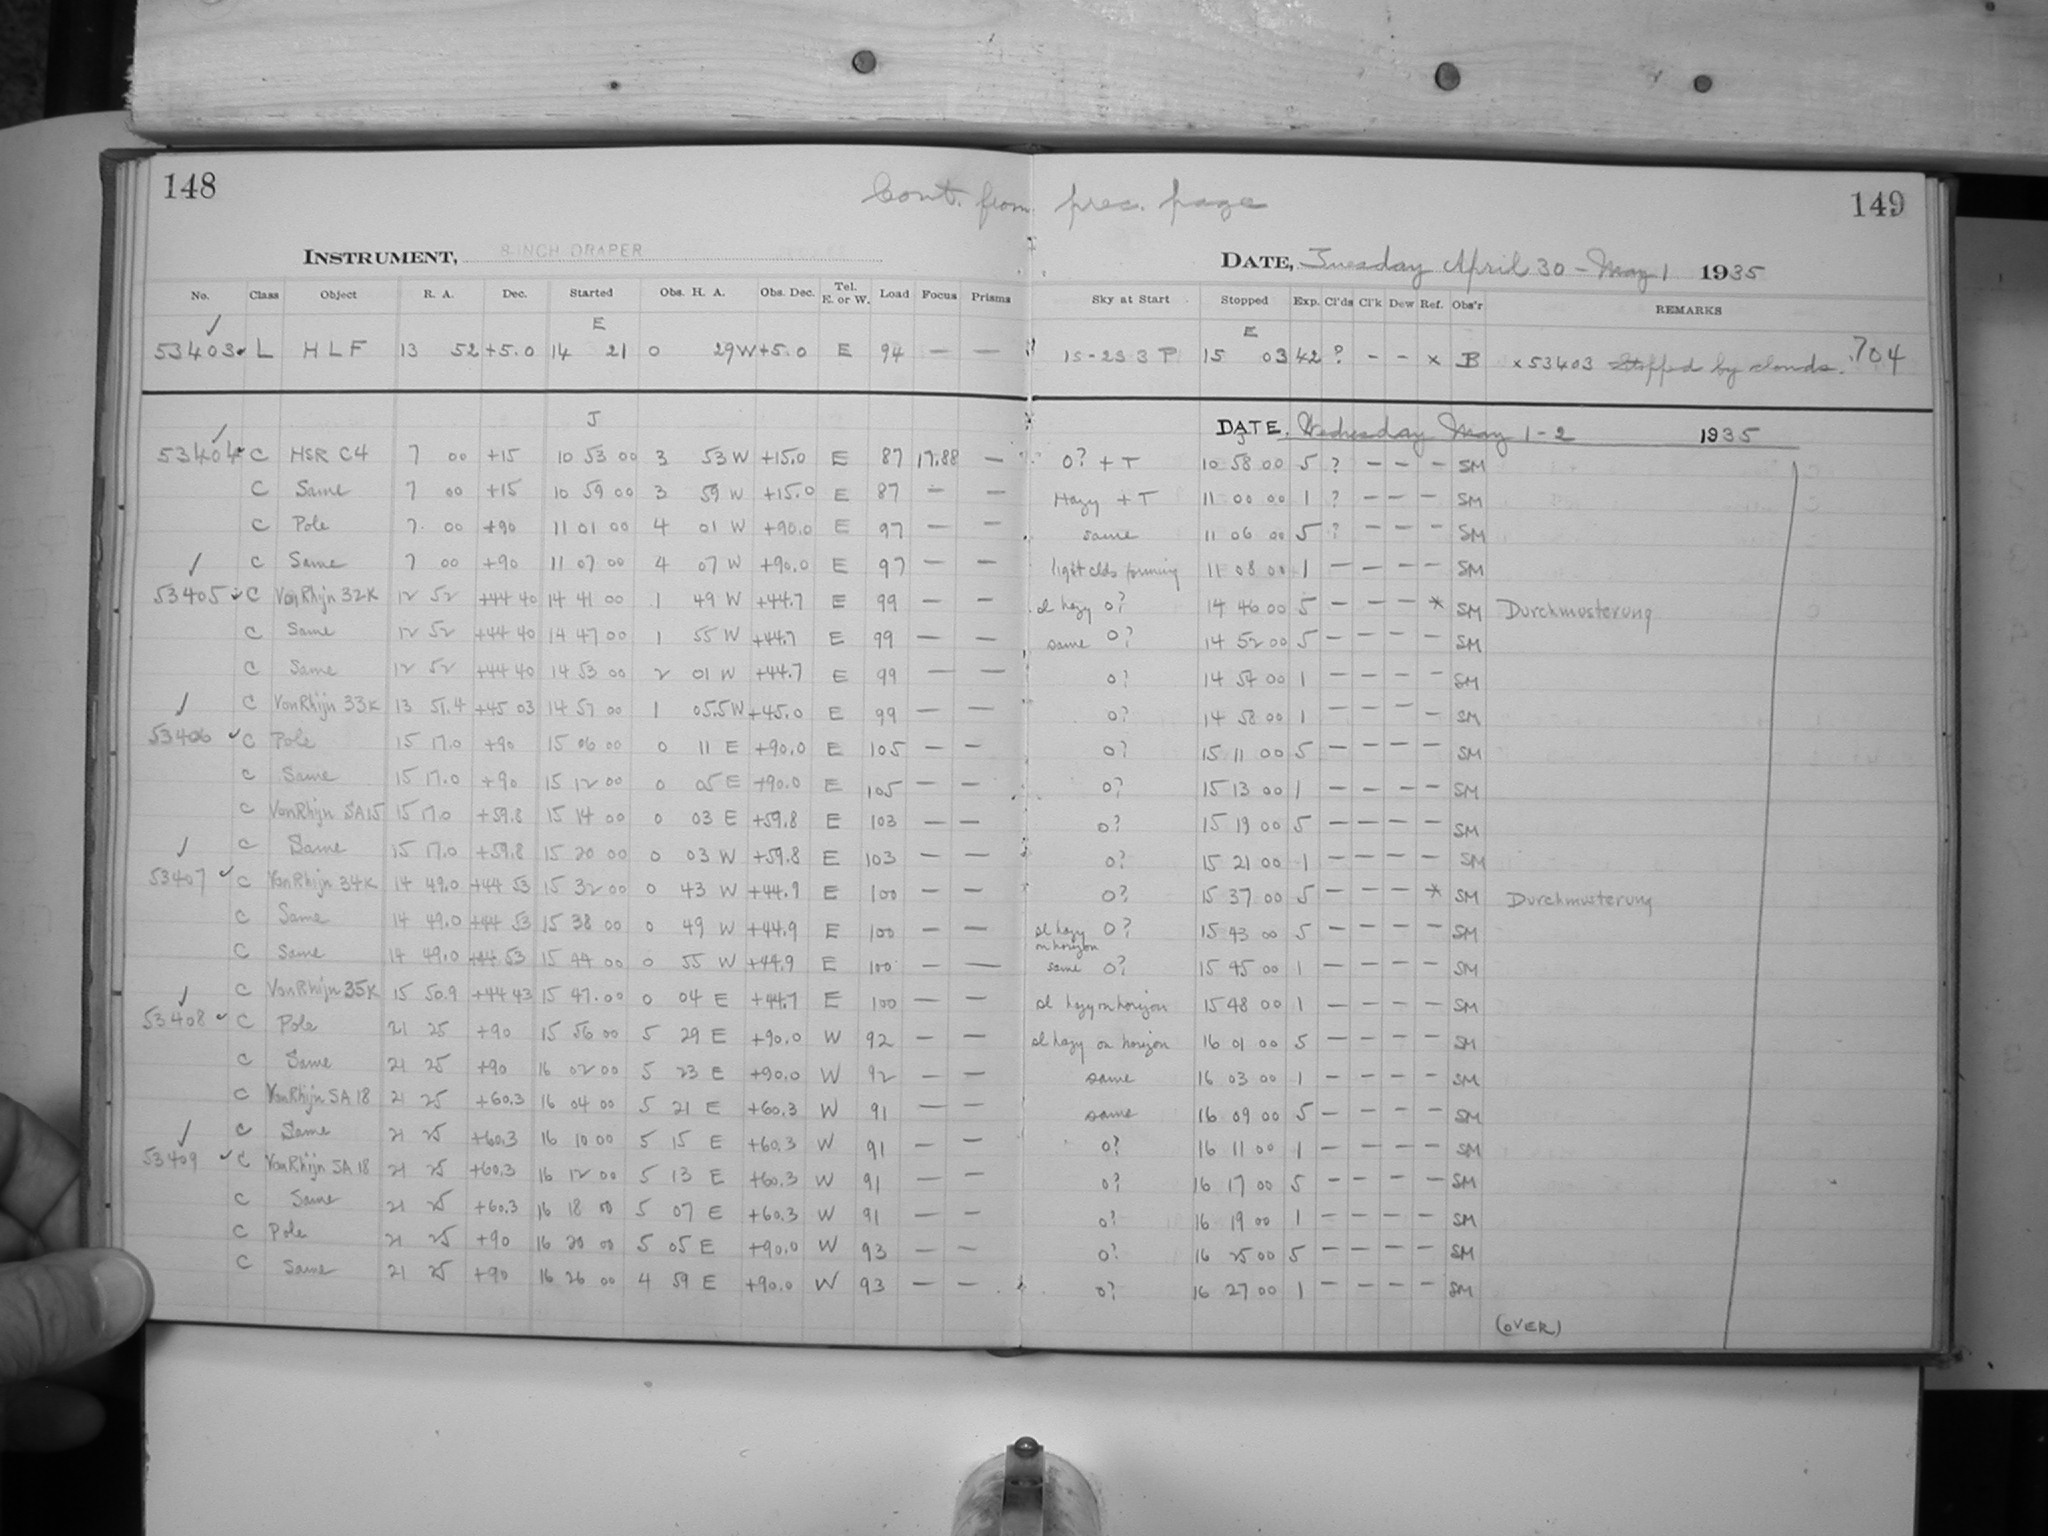 148
Cont. from prec. page
149
INSTRUMENT, 8 INCH DRAPER
DATE, Tuesday April 30 - May 1 1935
No. Class Object R. A. Dec. Started Obs. H. A. Obs. Dec. Tel. E. or W. Load Focus Prisms Sky at Start Stopped Exp. Cl'ds Cl'k Dew Ref. Obs'r REMARKS
E E
53403 L H L F 13 52 +5.0 14 21 0 29 W +5.0 E 94 — — 15-23 3 P 15 03 42 ? - - x B x 53403 Stopped by clouds. 704
J DATE, Wednesday May 1-2 1935
53404 C HSR C4 7 00 +15 10 53 00 3 53 W +15.0 E 87 17.88 — 0? + T 10 58 00 5 ? - - - SM
C Same 7 00 +15 10 59 00 3 59 W +15.0 E 87 — — Hazy + T 11 00 00 1 ? - - - SM
C Pole 7 00 +90 11 01 00 4 01 W +90.0 E 97 — — same 11 06 00 5 ? - - - SM
C Same 7 00 +90 11 07 00 4 07 W +90.0 E 97 — — light clds forming 11 08 00 1 - - - - SM
53405 C Van Rhijn 32K 12 52 +44 40 14 41 00 1 49 W +44.7 E 99 — — sl hazy 0? 14 46 00 5 - - - * SM Durchmusterung
C Same 12 52 +44 40 14 47 00 1 55 W +44.7 E 99 — — same 0? 14 52 00 5 - - - - SM
C Same 12 52 +44 40 14 53 00 2 01 W +44.7 E 99 — — 0? 14 54 00 1 - - - - SM
C Van Rhijn 33K 13 51.4 +45 03 14 57 00 1 05.5 W +45.0 E 99 — — 0? 14 58 00 1 - - - - SM
53406 C Pole 15 17.0 +90 15 06 00 0 11 E +90.0 E 105 — — 0? 15 11 00 5 - - - - SM
C Same 15 17.0 +90 15 12 00 0 05 E +90.0 E 105 — — 0? 15 13 00 1 - - - - SM
C Van Rhijn SA15 15 17.0 +59.8 15 14 00 0 03 E +59.8 E 103 — — 0? 15 19 00 5 - - - - SM
C Same 15 17.0 +59.8 15 20 00 0 03 W +59.8 E 103 — — 0? 15 21 00 1 - - - - SM
53407 C Van Rhijn 34K 14 49.0 +44 53 15 32 00 0 43 W +44.9 E 100 — — 0? 15 37 00 5 - - - * SM Durchmusterung
C Same 14 49.0 +44 53 15 38 00 0 49 W +44.9 E 100 — — sl hazy on horizon 0? 15 43 00 5 - - - - SM
C Same 14 49.0 +44 53 15 44 00 0 55 W +44.9 E 100 — — same 0? 15 45 00 1 - - - - SM
C Van Rhijn 35K 15 50.9 +44 43 15 47.00 0 04 E +44.7 E 100 — — sl hazy on horizon 15 48 00 1 - - - - SM
53408 C Pole 21 25 +90 15 56 00 5 29 E +90.0 W 92 — — sl hazy on horizon 16 01 00 5 - - - - SM
C Same 21 25 +90 16 02 00 5 23 E +90.0 W 92 — — same 16 03 00 1 - - - - SM
C Van Rhijn SA 18 21 25 +60.3 16 04 00 5 21 E +60.3 W 91 — — same 16 09 00 5 - - - - SM
C Same 21 25 +60.3 16 10 00 5 15 E +60.3 W 91 — — 0? 16 11 00 1 - - - - SM
53409 C Van Rhijn SA 18 21 25 +60.3 16 12 00 5 13 E +60.3 W 91 — — 0? 16 17 00 5 - - - - SM
C Same 21 25 +60.3 16 18 00 5 07 E +60.3 W 91 — — 0? 16 19 00 1 - - - - SM
C Pole 21 25 +90 16 20 00 5 05 E +90.0 W 93 — — 0? 16 25 00 5 - - - - SM
C Same 21 25 +90 16 26 00 4 59 E +90.0 W 93 — — 0? 16 27 00 1 - - - - SM
(OVER)